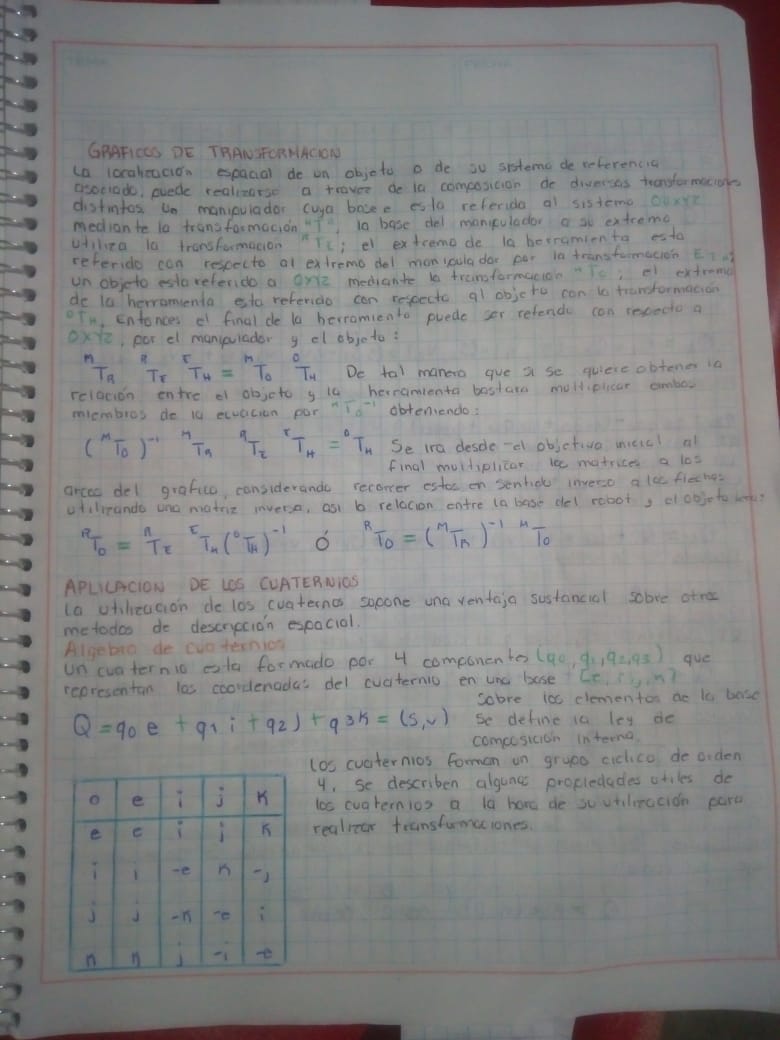 TEMA
FECHA
GRAFICOS DE TRANSFORMACION
La localización espacial de un objeto o de su sistema de referencia
asociado, puede realizarse a travez de la composicion de diversas transformaciones
distintas. Un manipulador cuya base e esta referida al sistema OUXYZ
mediante la transformación "T", la base del manipulador a su extremo
utiliza la transformación ᴿTE; el extremo de la herramienta esta
referido con respecto al extremo del manipulador por la transformación ETH;
un objeto esta referido a OXYZ mediante la transformación ᴹTo; el extremo
de la herramienta esta referido con respecto al objeto con la transformación
⁰TH, Entonces el final de la herramienta puede ser referido con respecto a
OXYZ, por el manipulador y el objeto:
ᴹTR ᴿTE ᴱTH = ᴹTO ᴼTH De tal manera que si se quiere obtener la
relación entre el objeto y la herramienta bastara multiplicar ambos
miembros de la ecuacion por ᴹTo⁻¹ obteniendo:
(ᴹTO)⁻¹ ᴹTR ᴿTE ᴱTH = ᴼTH Se ira desde el objetivo inicial al
final multiplicar las matrices a los
arcos del grafico, considerando recorrer estos en sentido inverso a las flechas
utilizando una matriz inversa, asi la relacion entre la base del robot y el objeto
ᴿTO = ᴿTE ᴱTH (ᴼTH)⁻¹ Ó ᴿTO = (ᴹTR)⁻¹ ᴹTO
APLICACION DE LOS CUATERNIOS
La utilización de los cuaternos supone una ventaja sustancial sobre otros
metodos de descripción espacial.
Algebra de cuaternios
Un cuaternio esta formado por 4 componentes (q0, q1, q2, q3) que
representan las coordenadas del cuaternio en una base
sobre los elementos de la base
Q = q0 e + q1 i + q2 j + q3 k = (s, v) se define la ley de
composición interna.
Los cuaternios forman un grupo ciclico de orden
4, se describen algunas propiedades utiles de
los cuaternios a la hora de su utilización para
realizar transformaciones.
o e i j k
e e i j k
i i -e k -j
j j -k -e i
k k j -i -e